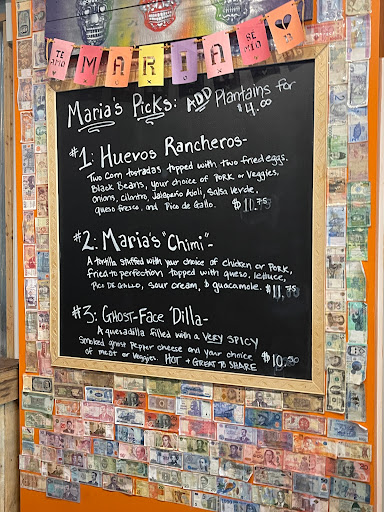 TE AMO MARIA BÉSAME
Maria's Picks: ADD Plantains for
$4.00
#1: Huevos Rancheros-
Two corn tostadas topped with two fried eggs,
Black Beans, your choice of Pork or Veggies,
onions, cilantro, Jalapeño Aioli, Salsa Verde,
queso fresco, and Pico de Gallo. $10.75
#2: Maria's "Chimi"-
A tortilla stuffed with your choice of chicken or Pork,
fried to perfection topped with queso, lettuce,
Pico de Gallo, sour cream, & guacamole. $11.75
#3: Ghost-Face 'Dilla-
A quesadilla filled with a VERY SPICY
Smoked ghost pepper cheese and your choice
of meat or veggies. HOT + GREAT TO SHARE $10.50